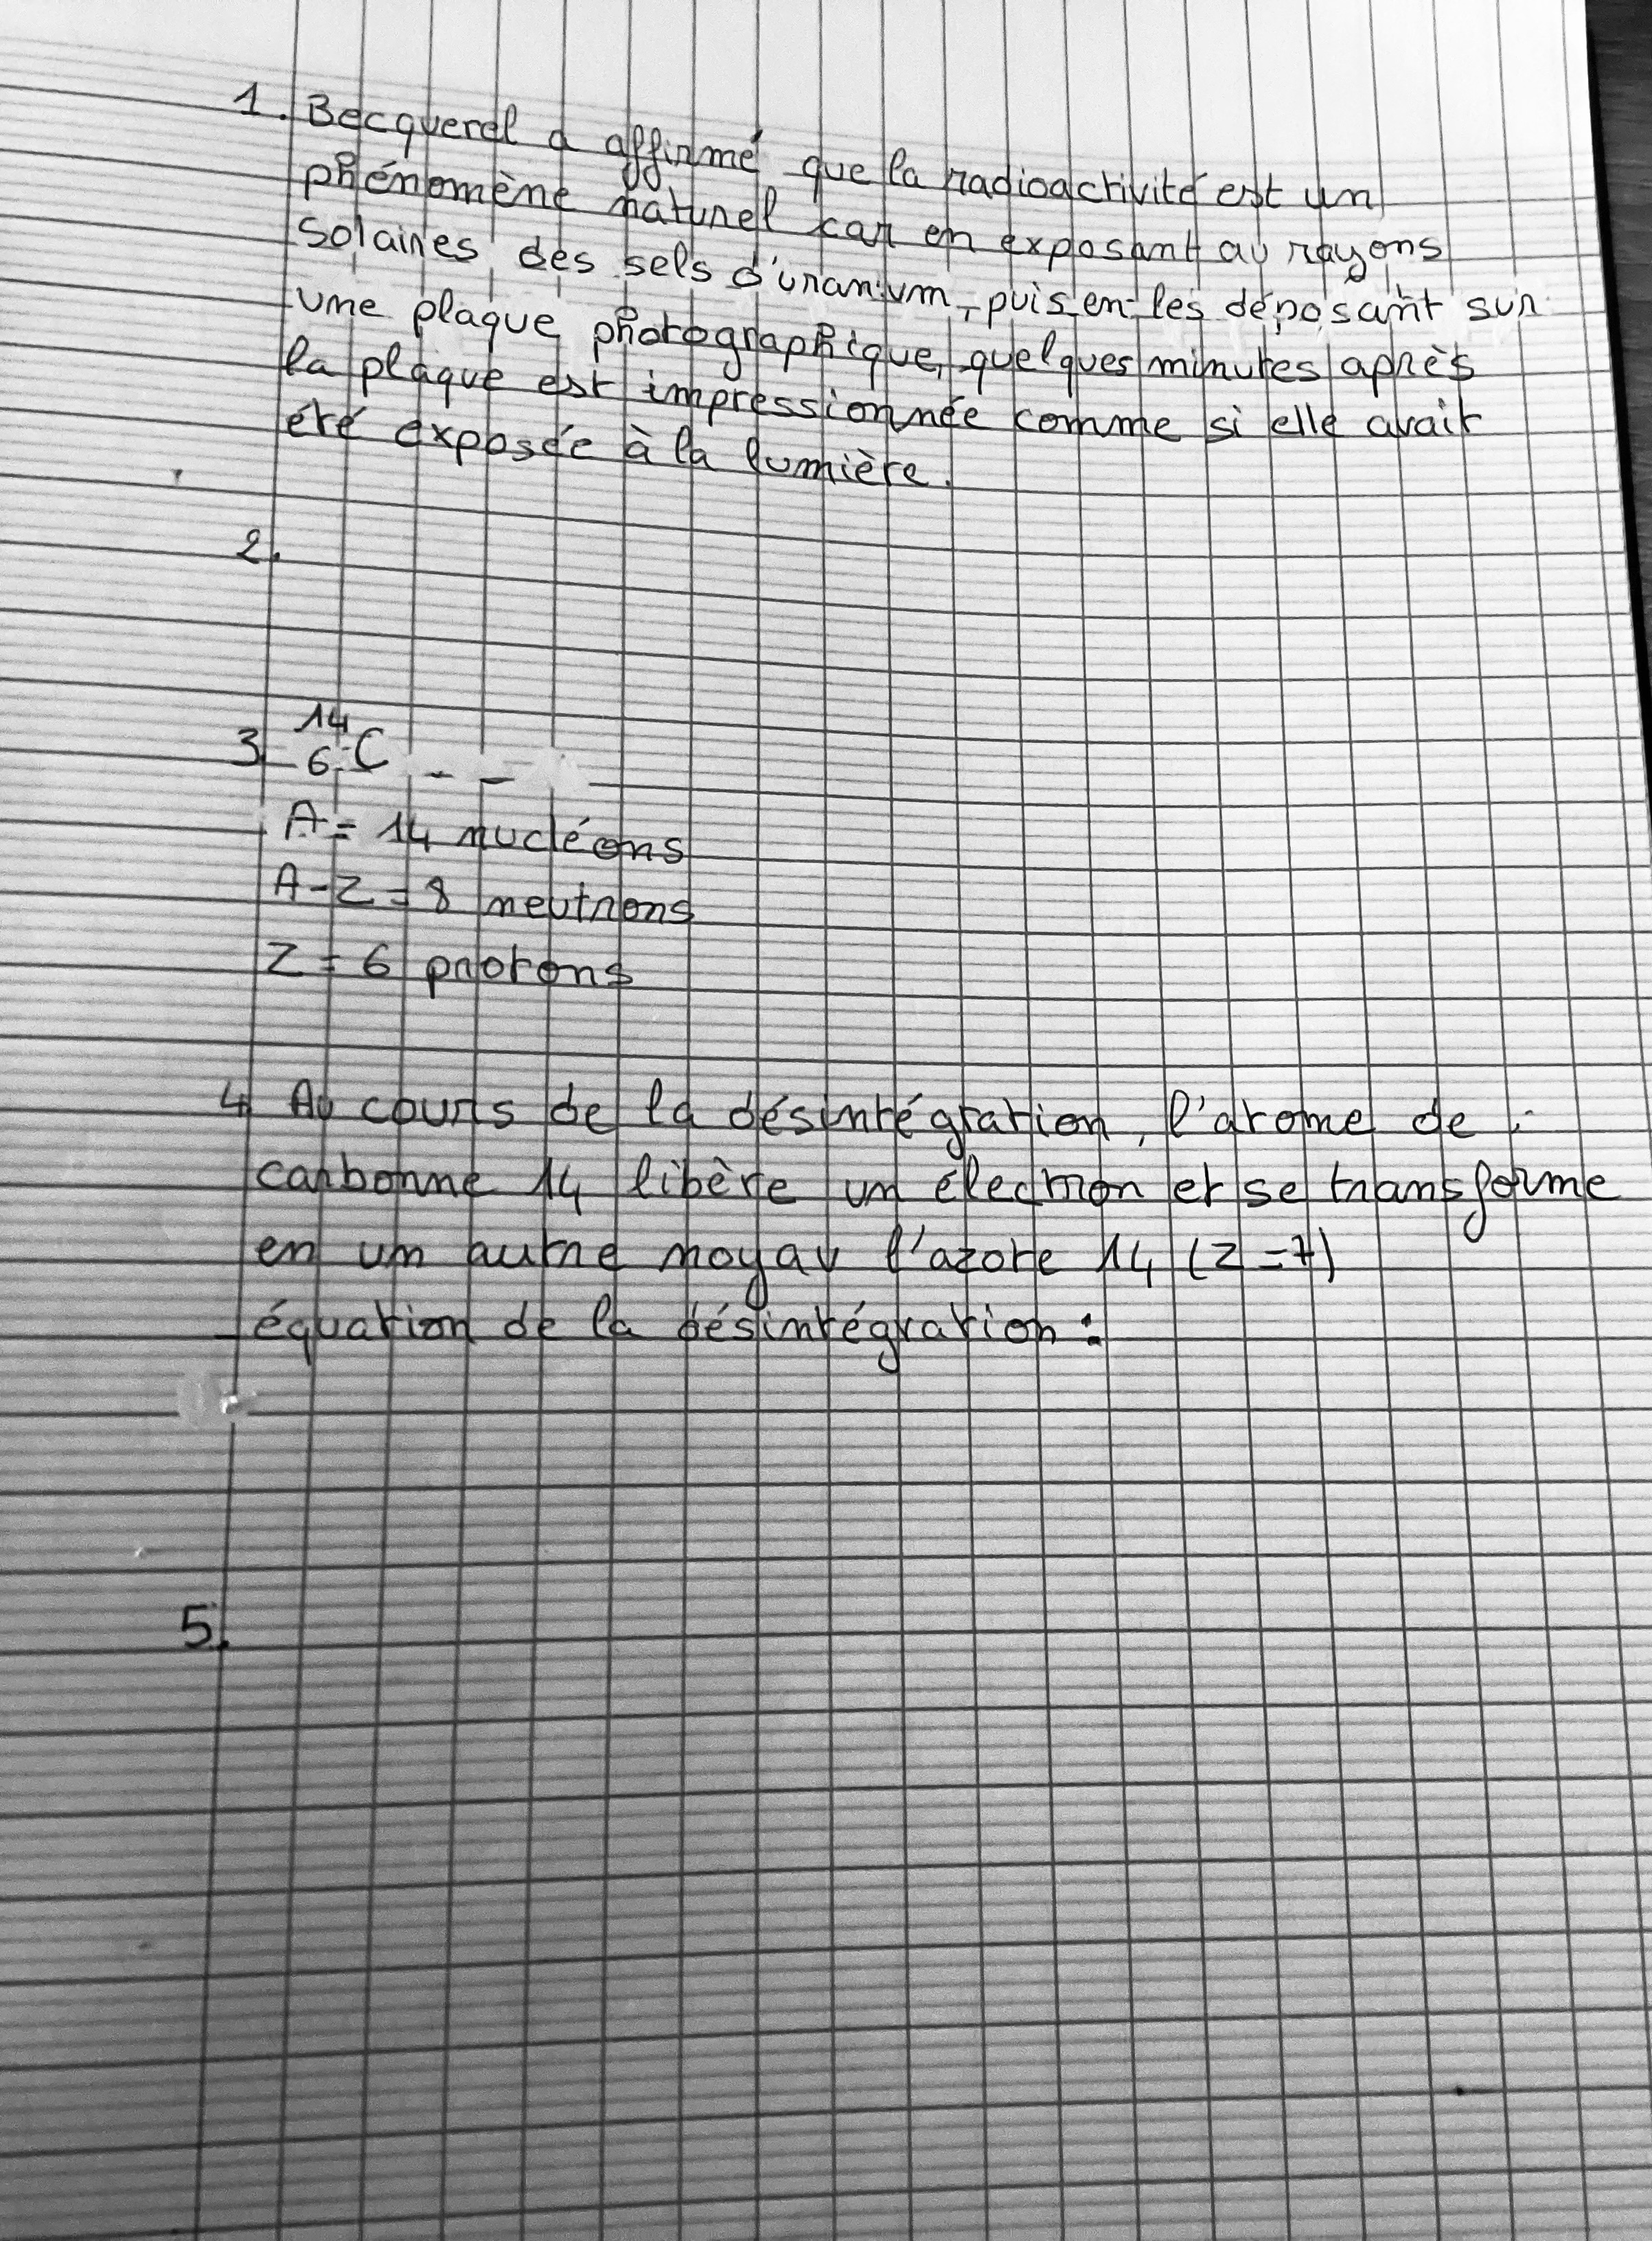 1. Becquerel a affirmé que la radioactivité est un
phénomène naturel car en exposant au rayons
solaires des sels d'uranium, puis en les déposant sur
une plaque photographique, quelques minutes après
la plaque est impressionnée comme si elle avait
été exposée à la lumière.
2.
3. ¹⁴₆C
A = 14 nucléons
A-Z = 8 neutrons
Z = 6 protons
4 Au cours de la désintégration, l'atome de
carbonne 14 libère un électron et se transforme
en un autre noyau l'azote 14 (Z=7)
équation de la désintégration :
5.